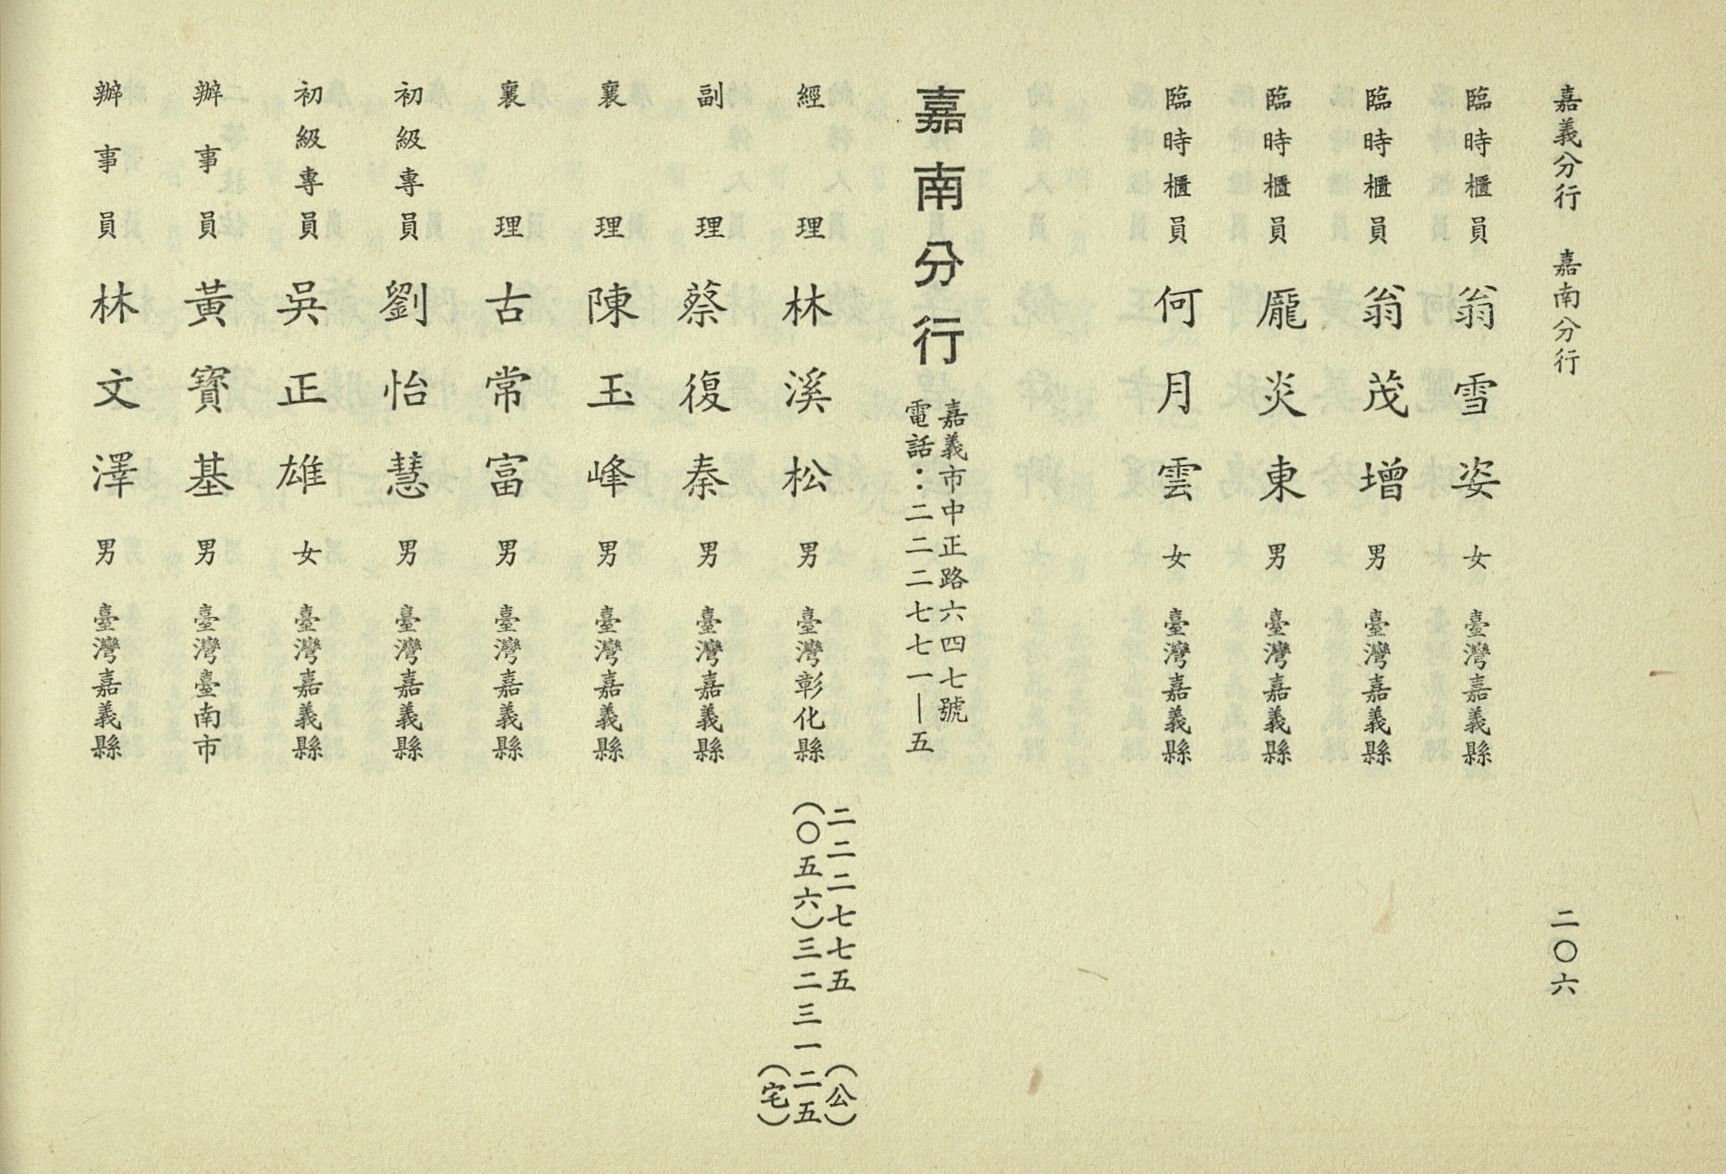 嘉義分行　嘉南分行
二〇六
臨時櫃員　翁雪姿　女　臺灣嘉義縣
臨時櫃員　翁茂增　男　臺灣嘉義縣
臨時櫃員　龎炎東　男　臺灣嘉義縣
臨時櫃員　何月雲　女　臺灣嘉義縣
嘉南分行
嘉義市中正路六四七號
電話：二二二七七一—五
經理　林溪松　男　臺灣彰化縣
二二二七七五（公）
（〇五六）三二三一二五（宅）
副理　蔡復秦　男　臺灣嘉義縣
襄理　陳玉峰　男　臺灣嘉義縣
襄理　古常富　男　臺灣嘉義縣
初級專員　劉怡慧　男　臺灣嘉義縣
初級專員　吳正雄　女　臺灣嘉義縣
辦事員　黃寶基　男　臺灣臺南市
辦事員　林文澤　男　臺灣嘉義縣